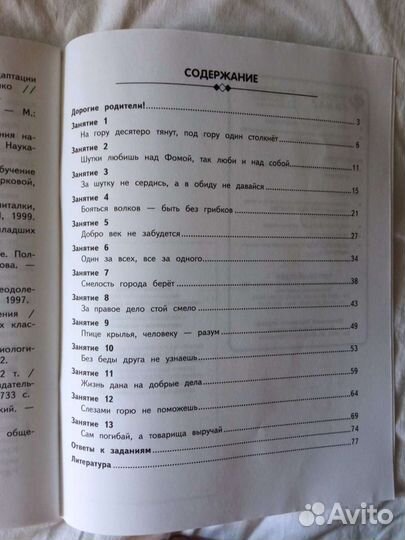 даптации
ько //
— М.:
ния на-
Наука-
бучение
рковой,
питалки,
I, 1999.
ладших
е. Пол-
ова. —
еодоле-
1997.
ения /
х клас-
иологи-
2.
2 т. /
датель-
733 с.
ский. —
обще-
СОДЕРЖАНИЕ
Дорогие родители! 3
Занятие 1
На гору десятеро тянут, под гору один столкнёт 6
Занятие 2
Шутки любишь над Фомой, так люби и над собой 11
Занятие 3
За шутку не сердись, а в обиду не давайся 15
Занятие 4
Бояться волков — быть без грибков 21
Занятие 5
Добро век не забудется 27
Занятие 6
Один за всех, все за одного 34
Занятие 7
Смелость города берёт 38
Занятие 8
За правое дело стой смело 43
Занятие 9
Птице крылья, человеку — разум 49
Занятие 10
Без беды друга не узнаешь 53
Занятие 11
Жизнь дана на добрые дела 59
Занятие 12
Слезами горю не поможешь 64
Занятие 13
Сам погибай, а товарища выручай 69
Ответы к заданиям 74
Литература 77
Avito